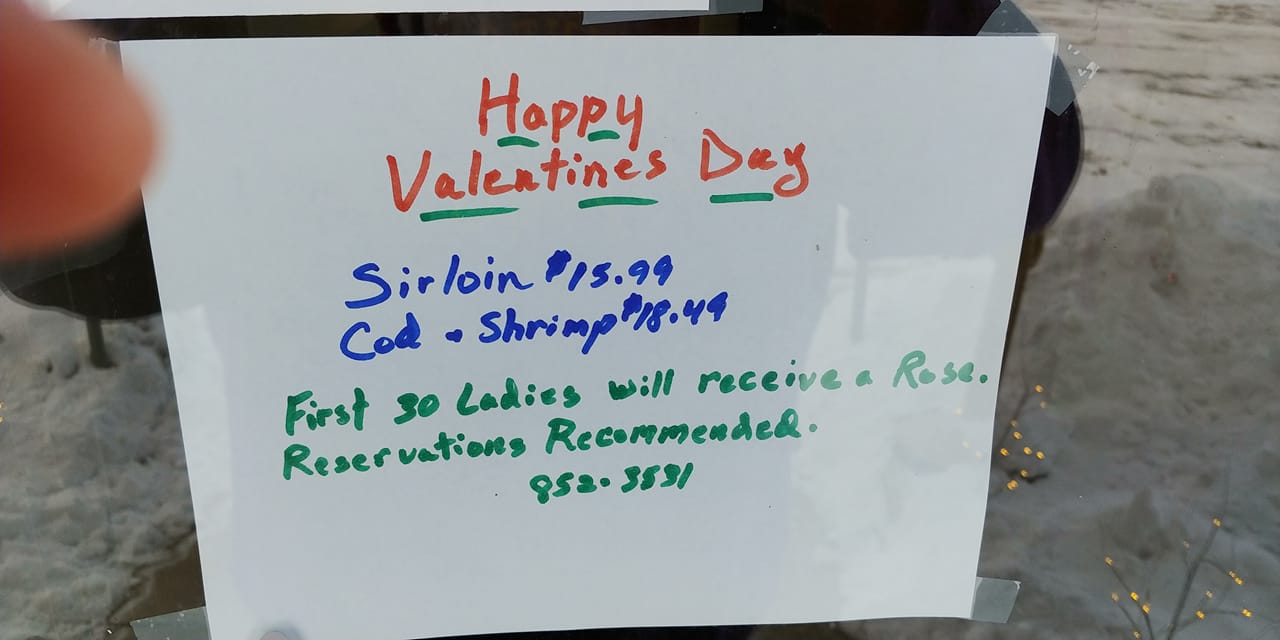 Happy
Valentines Day
Sirloin $15.99
Cod & Shrimp $18.49
First 30 Ladies will receive a Rose.
Reservations Recommended.
852-3531